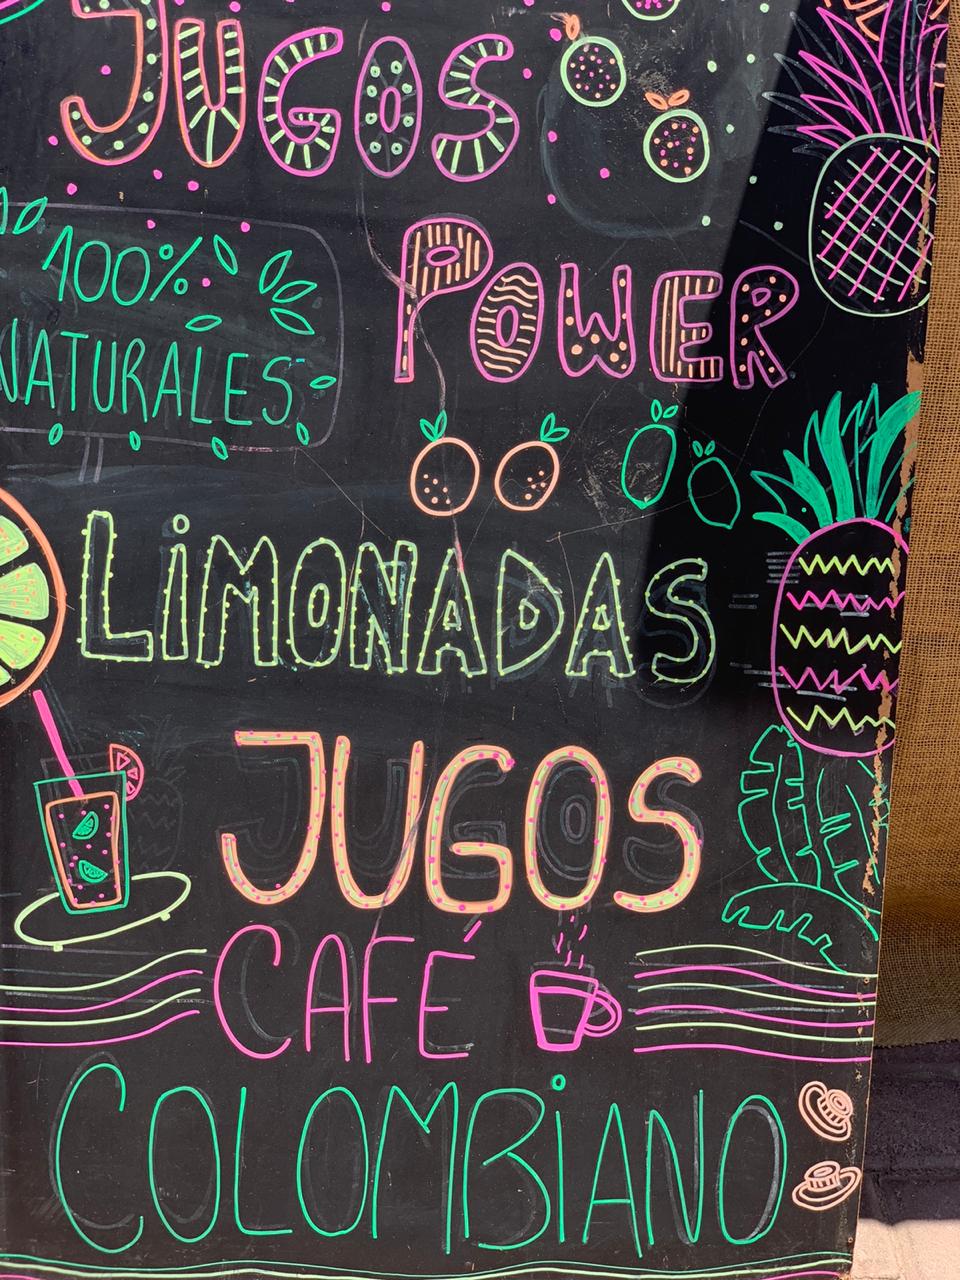 JUGOS
100%
NATURALES
POWER
LiMONADAS
JUGOS
CAFÉ
COLOMBiANO